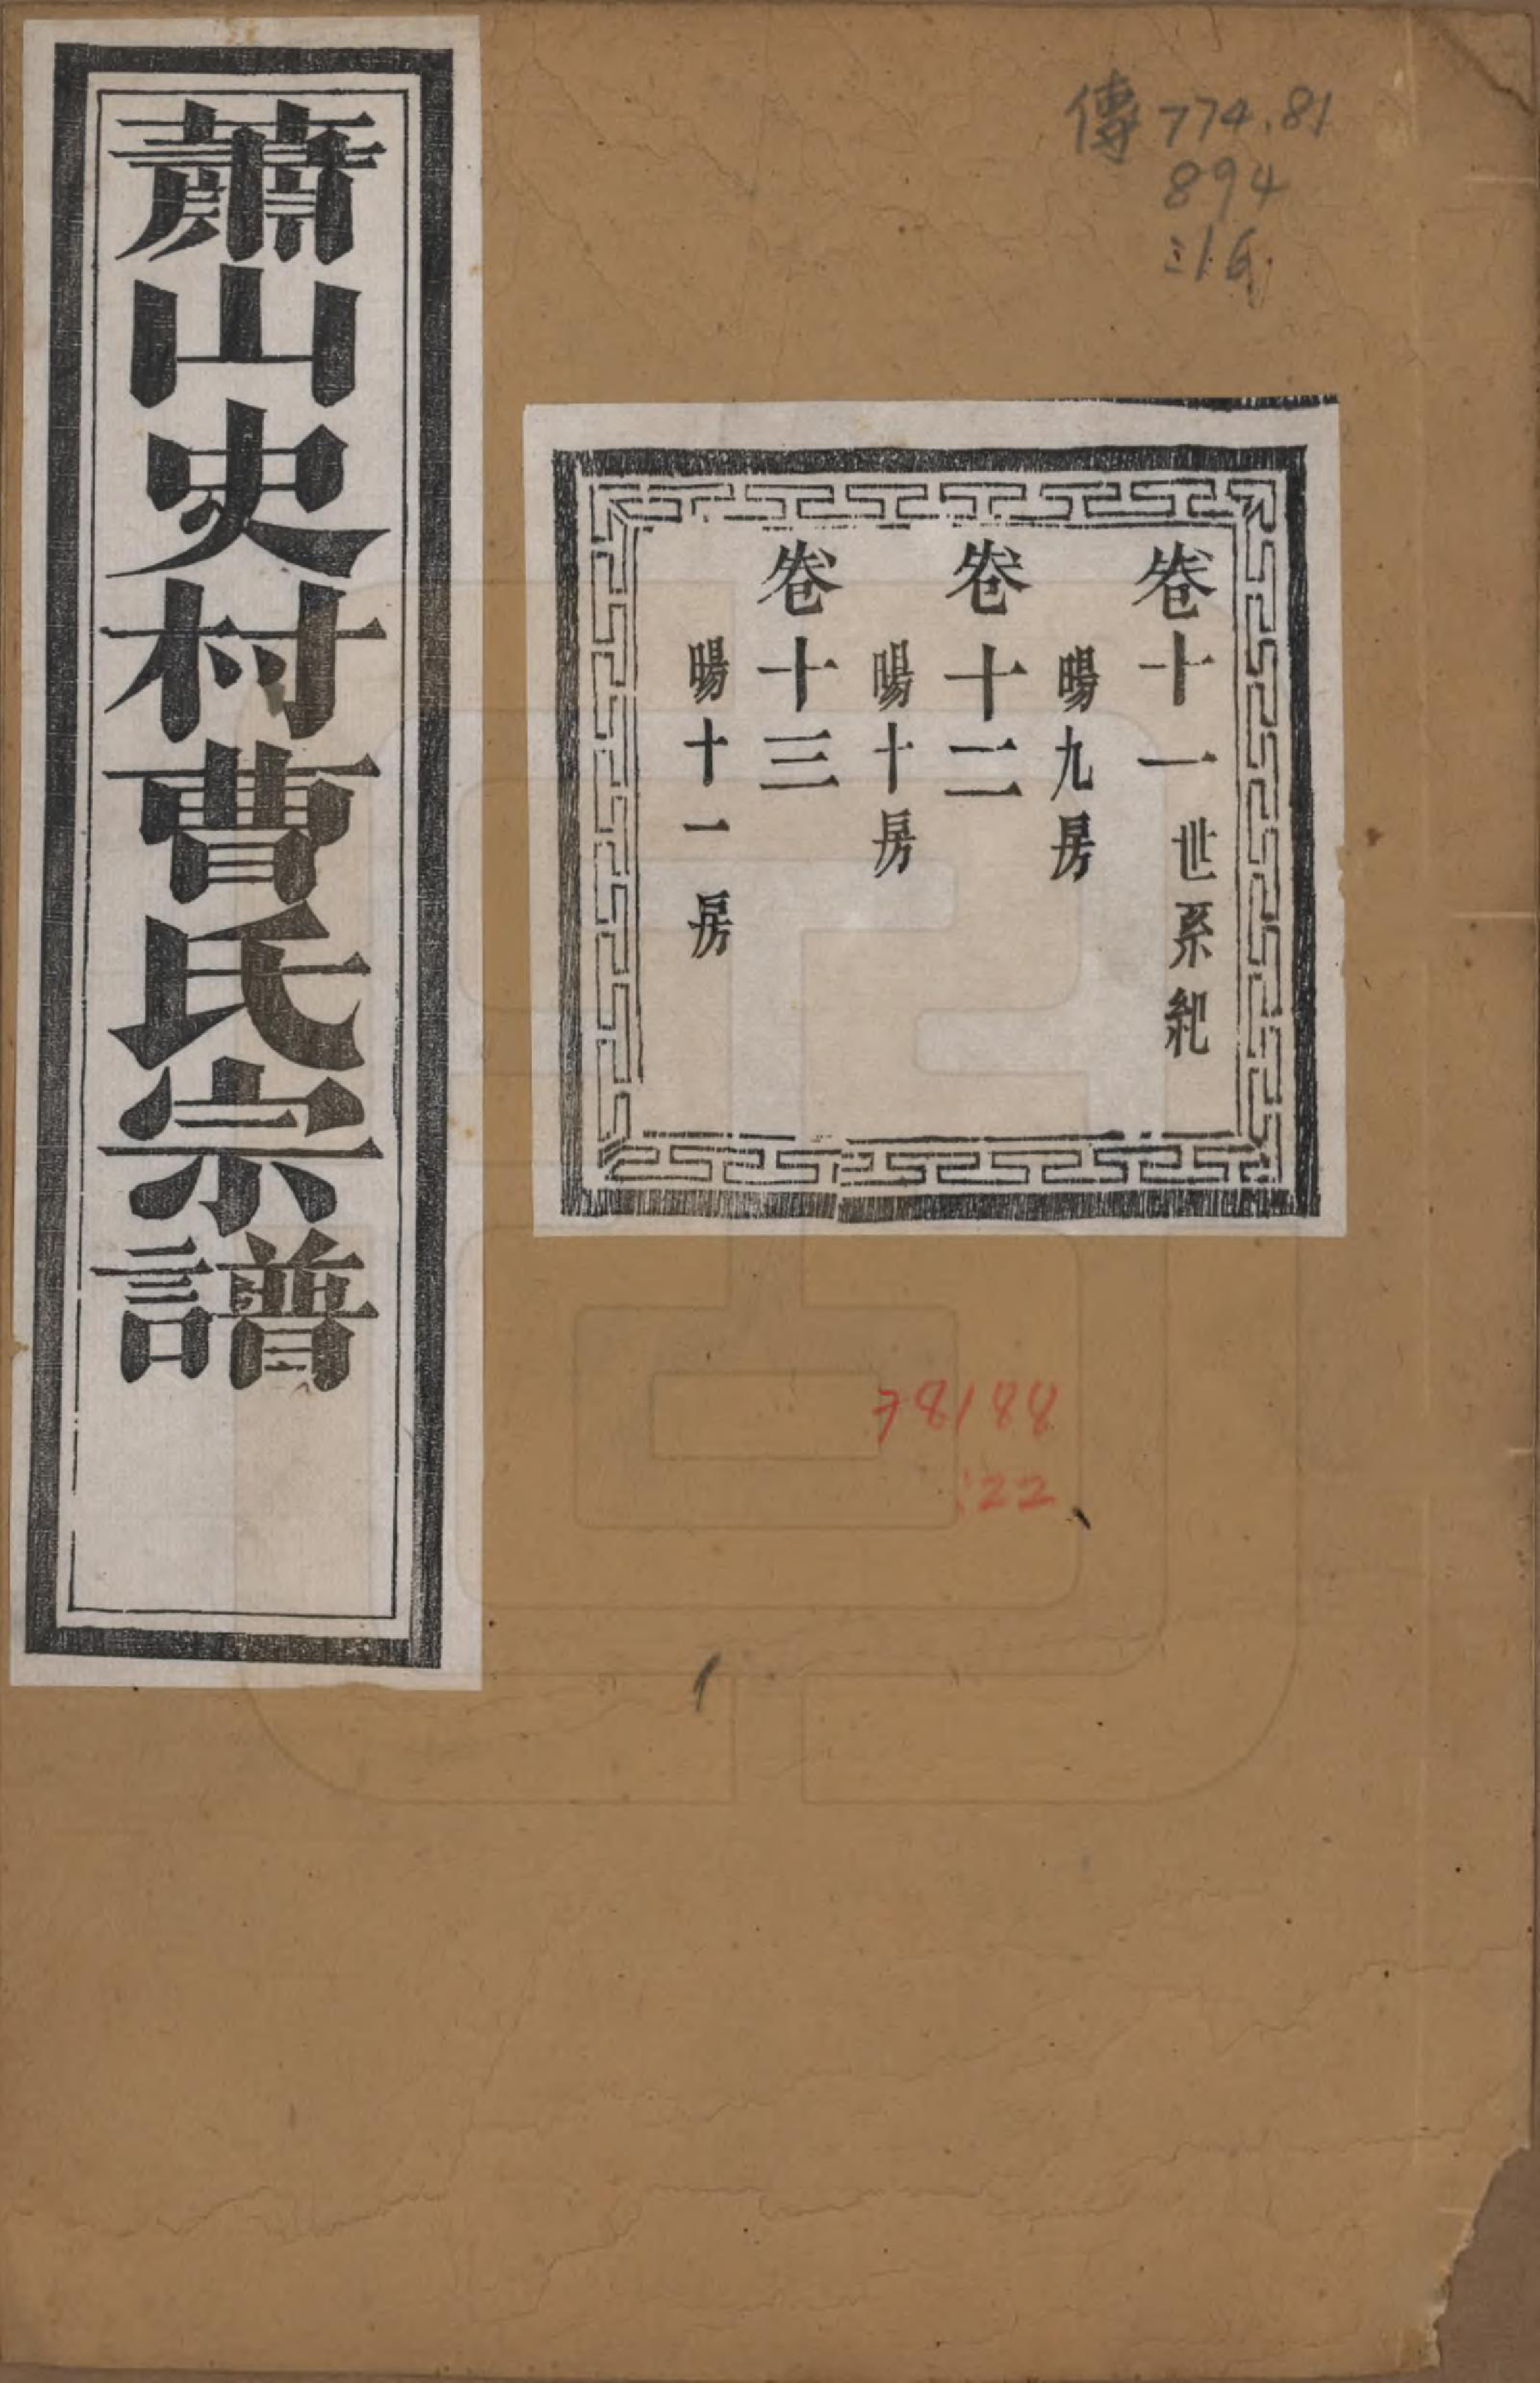 蕭山史村曹氏宗譜
卷十一 世系紀
暘九房
卷十二
暘十房
卷十三
暘十一房
傳 774.81
894
78188
:22